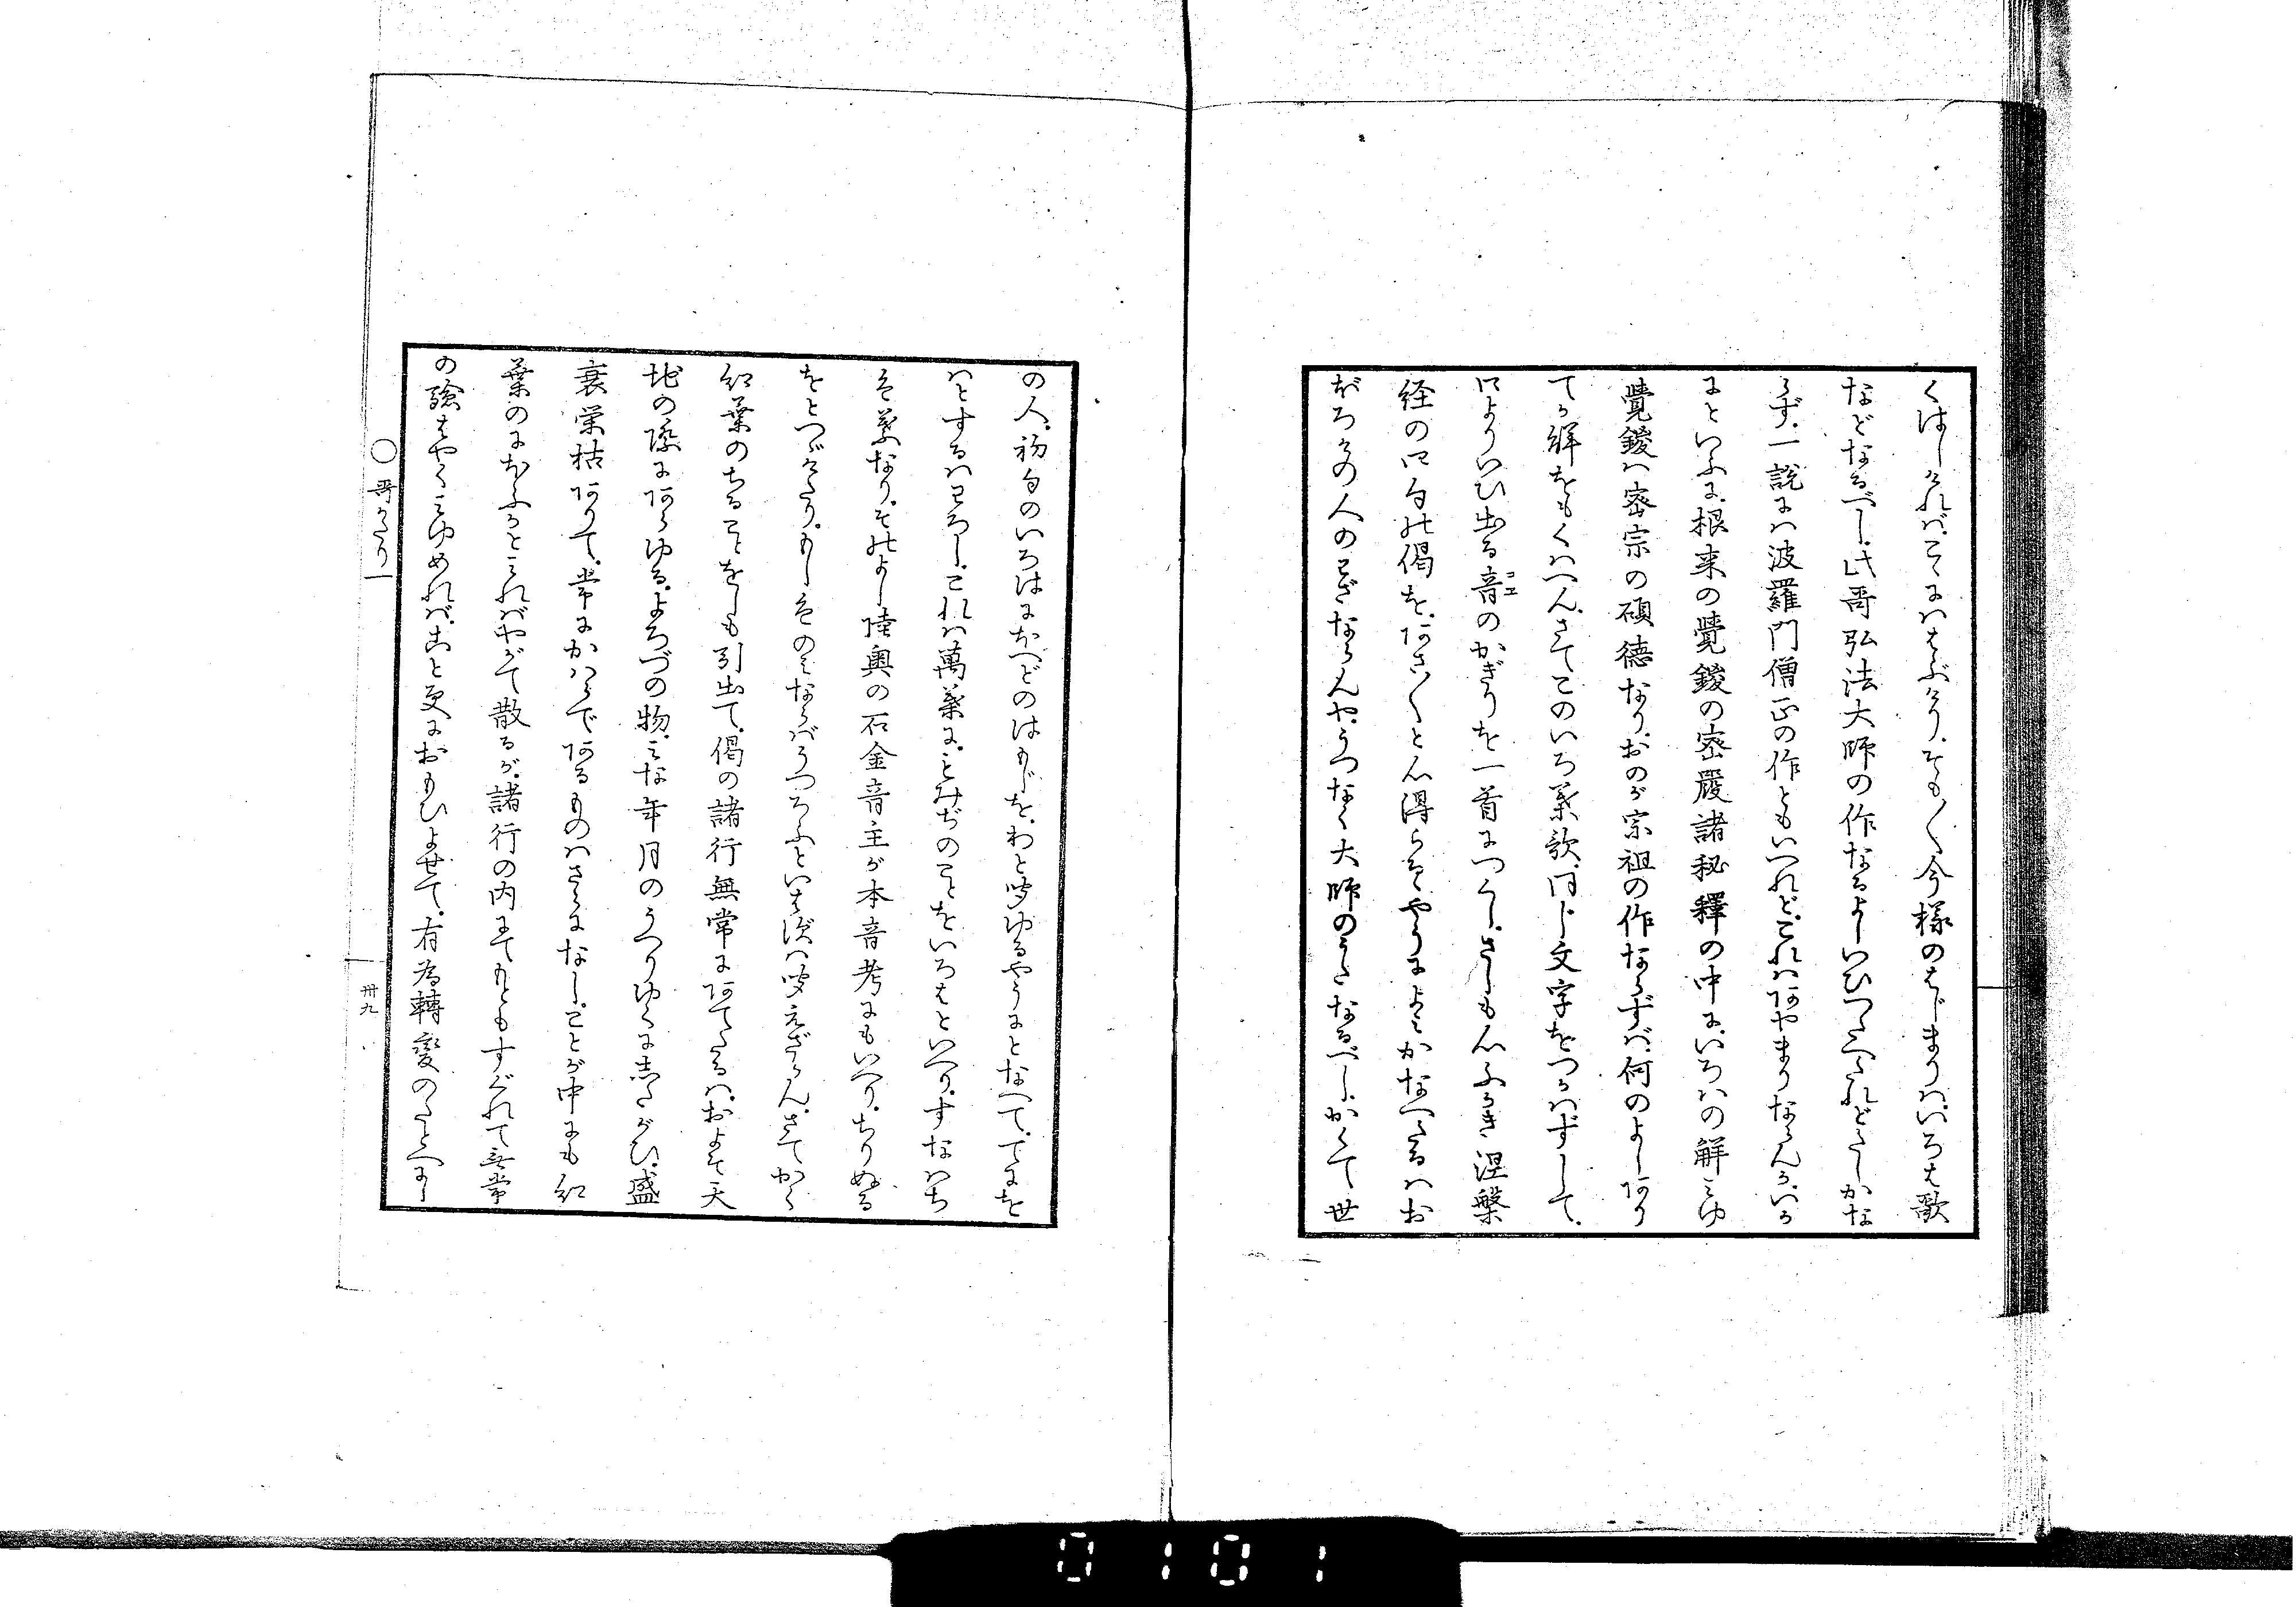 くはしければ、こゝにははぶけり、そも〳〵今様のはじまりは、いろは歌
などなるべし、此哥弘法大師の作なるよしいひつたへたれどたしかな
らず、一説には波羅門僧正の作ともいへれど、これはあやまりならんか、いか
にといふに、根来の覺鑁の密嚴諸秘釋の中に、いろはの解みゆ
覺鑁は密宗の碩德なり、おのが宗祖の作ならずば、何のよしあり
てか解をもくはへん、さてこのいろは歌、同じ文字をつかはずして、
口よりいひ出る音コヱのかぎりを一首につくし、さしも心ふかき涅槃
経の四句の偈を、あさ〳〵と心得らるゝやうによみかなへたるはお
ぼろけの人のわざならんや、うつなく大師のうたなるべし、かくて世
の人、初句のいろはにほへどのはもじを、わと唱ゆるやうにとなへて、てにを
はとするはわろし、これは萬葉に、もみぢのことをいろはといへり、すなはち
その葉なり、そのよし陸奥の石金音主が本音考にもいへり、ちりぬる
をとつゞけたり、もし色のみならばうつろふといはずは聞えざらん、さてかく
紅葉のちることをしも引出て、偈の諸行無常にあてたるは、およそ天
地の際にあらゆる、よろづの物、みな年月のうつりゆくにしたがひ、盛
衰栄枯ありて、常にかはらであるものはさらになし、ことが中にも紅
葉のにほふかとみればやがて散るが、諸行の内にてもともすぐれて無常
の驗はやくみゆめれば、こと更におもひよせて、有為轉變のたとへに
○哥かたり一
卅九
0101